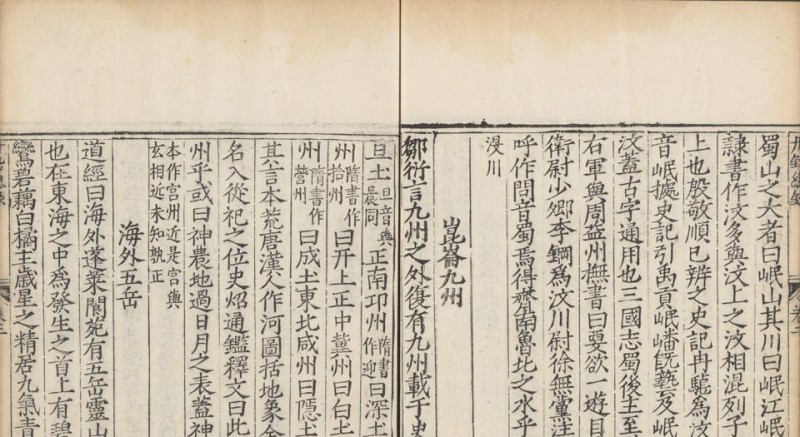 蜀山之大者曰岷山其川曰岷江岷
隸書作汶多與汶上之汶相混列子
上也殷敬順已辨之史記冉駹為汶
音岷據史記引禹貢岷嶓旣藝及岷
汶蓋古字通用也三國志蜀後主至
右軍與周益州撫書曰要欲一遊目
衛尉少卿李鋼爲汶川尉徐無黨注
呼作問音蜀焉得齊南魯北之水乎
沒川
崑崙九州
鄒衍言九州之外復有九州載于史
旦土旦音與晨同正南卭州隋書作迎曰深土
州隋書作拾州曰开上正中冀州曰白土
州隋書作營州曰成土東北咸州曰隱土
其言本荒唐漢人作河圖括地象全
名入從祀之位史炤通鑑釋文曰此
州乎或曰神農地過日月之表蓋神
本作宮州近是宮與玄相近未知孰正
海外五岳
道經曰海外蓬萊閬苑有五岳靈山
也在東海之中爲發生之首上有碧
鸞碧藕白橘主歲星之精居九氣青